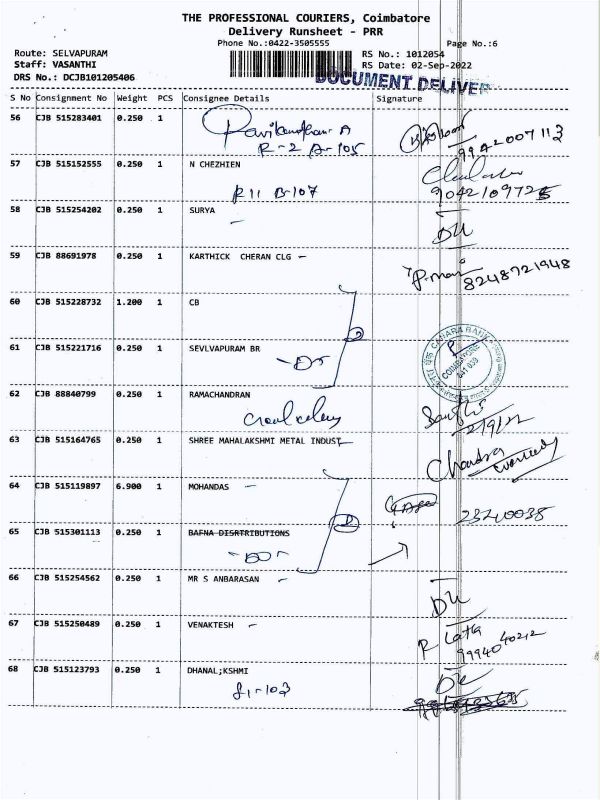 THE PROFESSIONAL COURIERS, Coimbatore
Delivery Runsheet - PRR
Phone No.:0422-3505555
Page No.:6
Route: SELVAPURAM
RS No.: 1012054
Staff: VASANTHI
RS Date: 02-Sep-2022
DRS No.: DCJB101205406
DOCUMENT DELIVER
S No Consignment No Weight PCS Consignee Details Signature
56 CJB 515283401 0.250 1
R-2 A-105
9942007113
57 CJB 515152555 0.250 1 N CHEZHIEN
R11 B-107
58 CJB 515254202 0.250 1 SURYA
59 CJB 88691978 0.250 1 KARTHICK CHERAN CLG
8248721948
60 CJB 515228732 1.200 1 CB
61 CJB 515221716 0.250 1 SEVLVAPURAM BR
CANARA BANK
COIMBATORE
62 CJB 88840799 0.250 1 RAMACHANDRAN
2/9/22
63 CJB 515164765 0.250 1 SHREE MAHALAKSHMI METAL INDUST
Chandra
64 CJB 515119897 6.900 1 MOHANDAS
23240038
65 CJB 515301113 0.250 1 BAFNA DISRTRIBUTIONS
66 CJB 515254562 0.250 1 MR S ANBARASAN
67 CJB 515250489 0.250 1 VENAKTESH
R Latha
9994040212
68 CJB 515123793 0.250 1 DHANAL;KSHMI